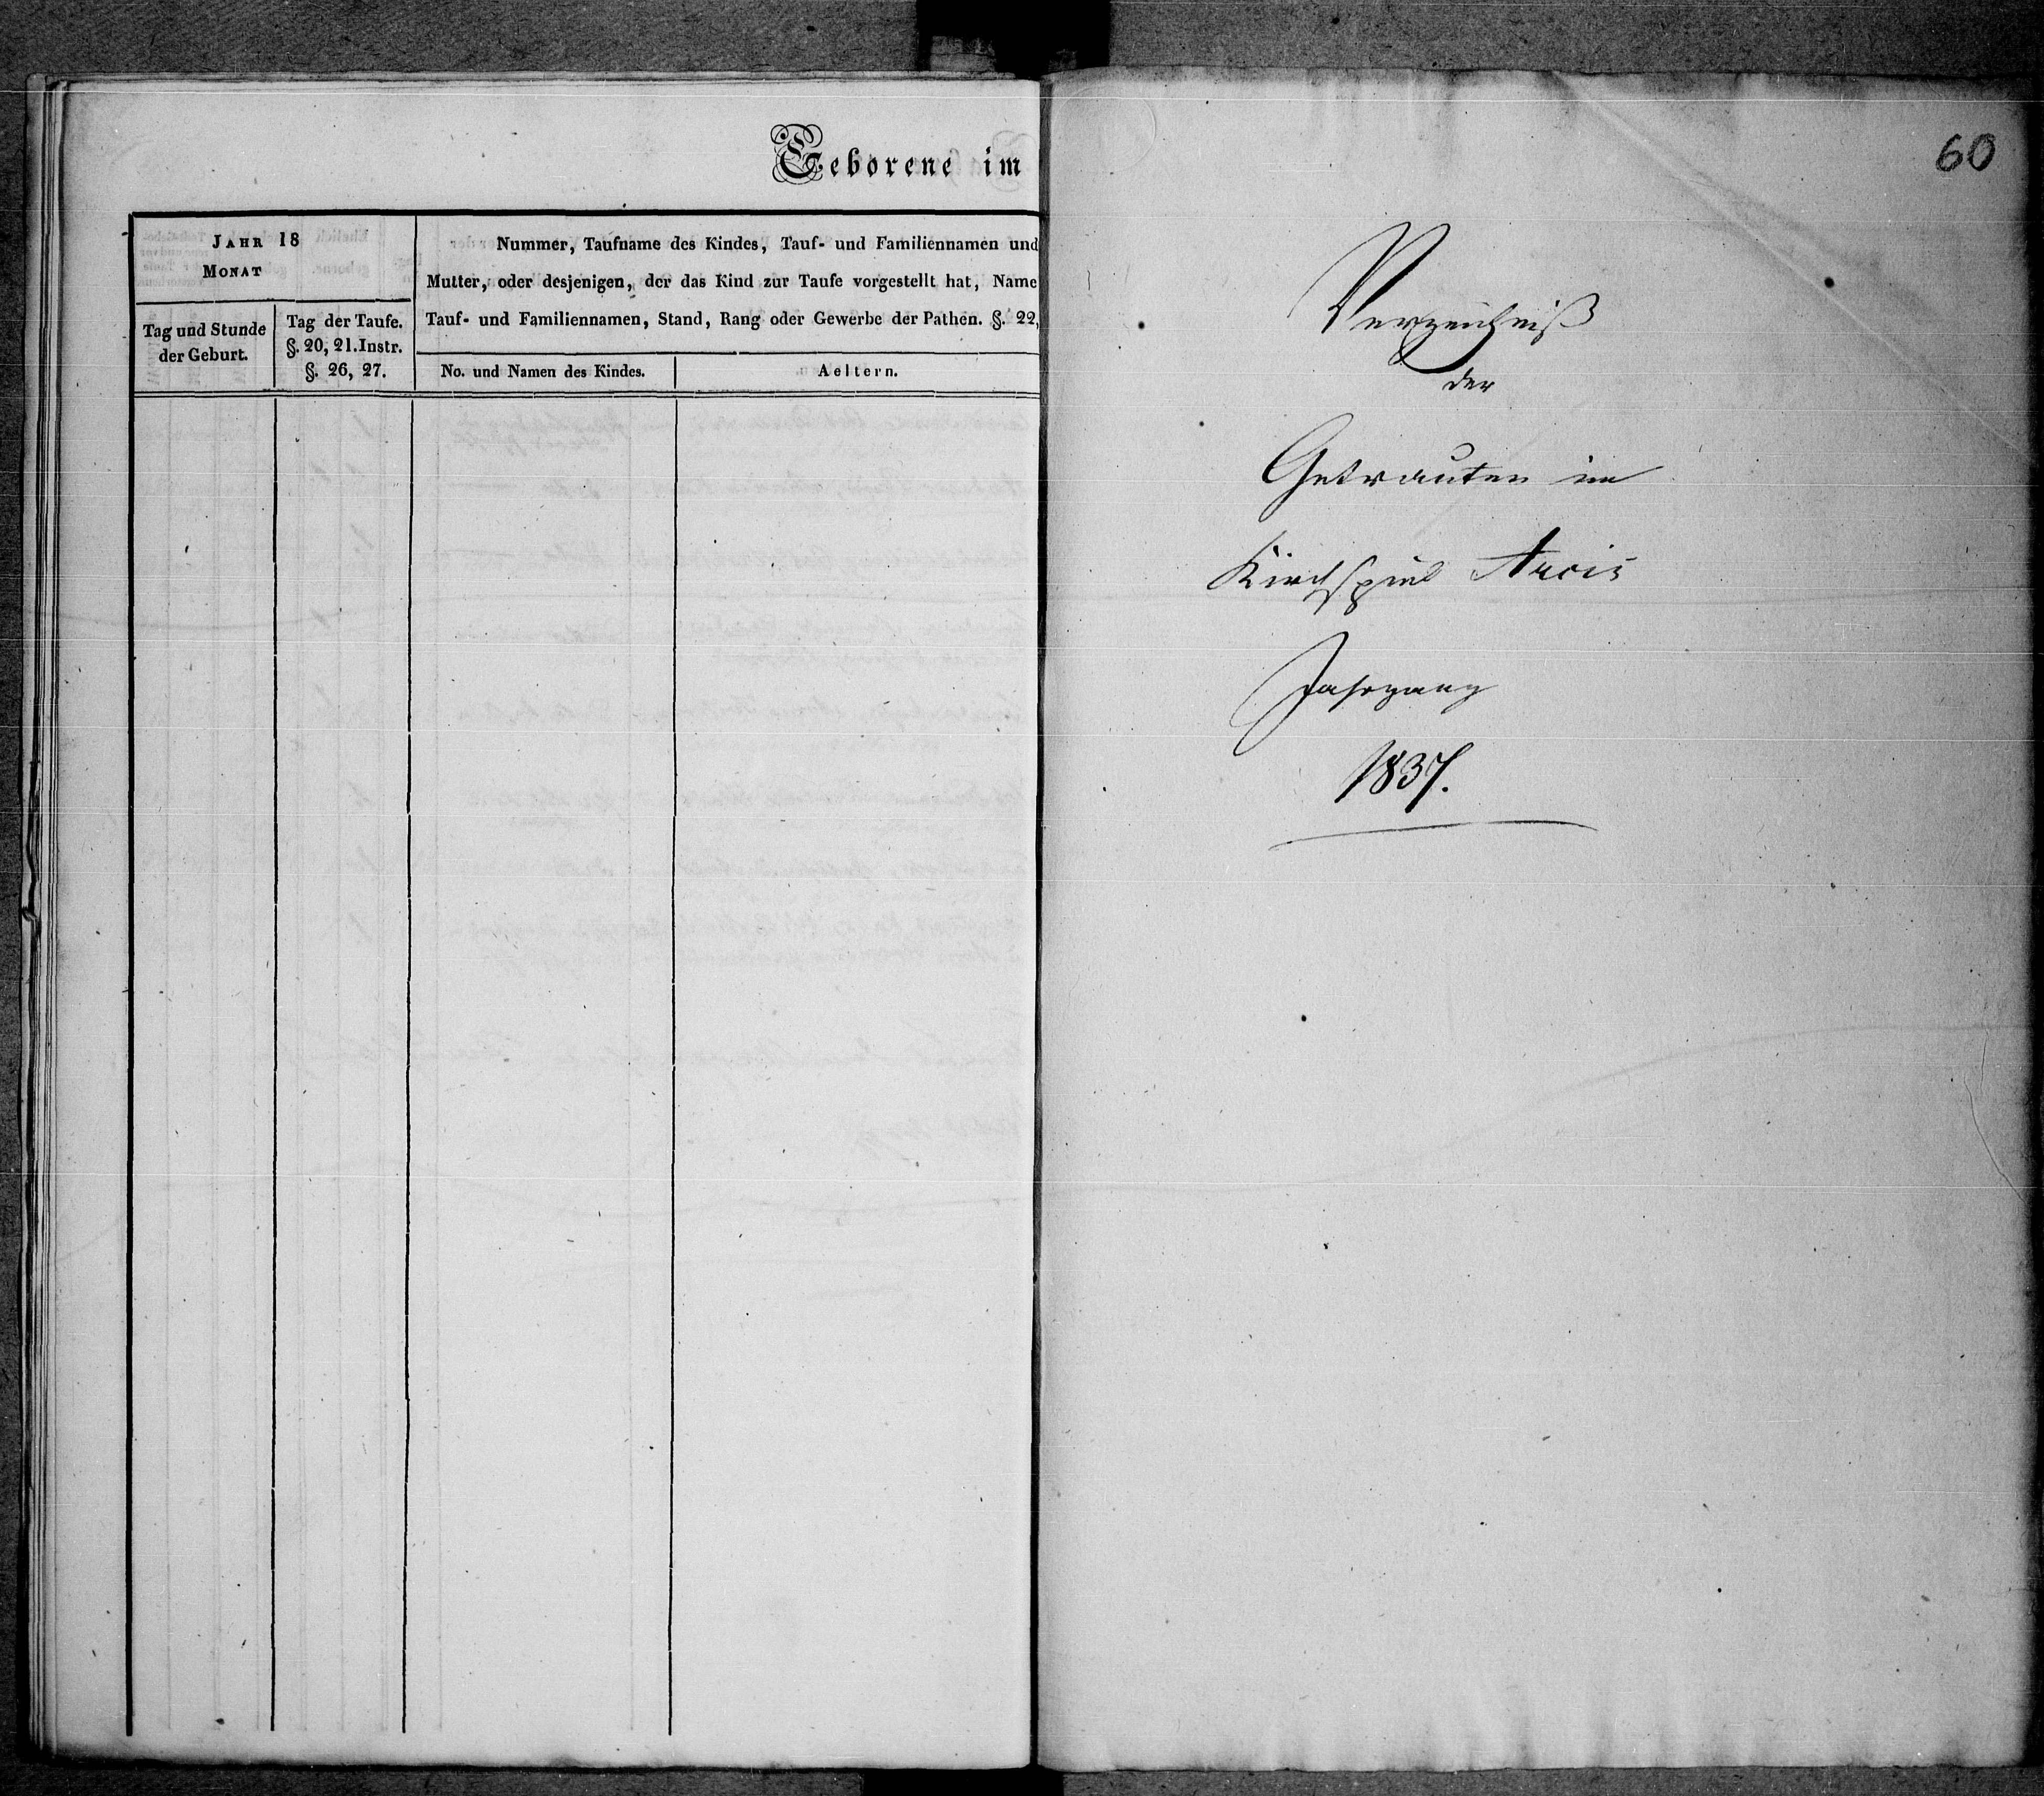 Geborene im
JAHR 18
MONAT
Tag und Stunde
der Geburt.
Tag der Taufe.
§. 20, 21. Instr.
§. 26, 27.
Nummer, Taufname des Kindes, Tauf- und Familiennamen und
Mutter, oder desjenigen, der das Kind zur Taufe vorgestellt hat, Name
Tauf- und Familiennamen, Stand, Rang oder Gewerbe der Pathen. §. 22,
No. und Namen des Kindes.
Aeltern.
60
Verzeichniß
der
Getrauten im
Kirchspiel Arcis
Jahrgang
1837.